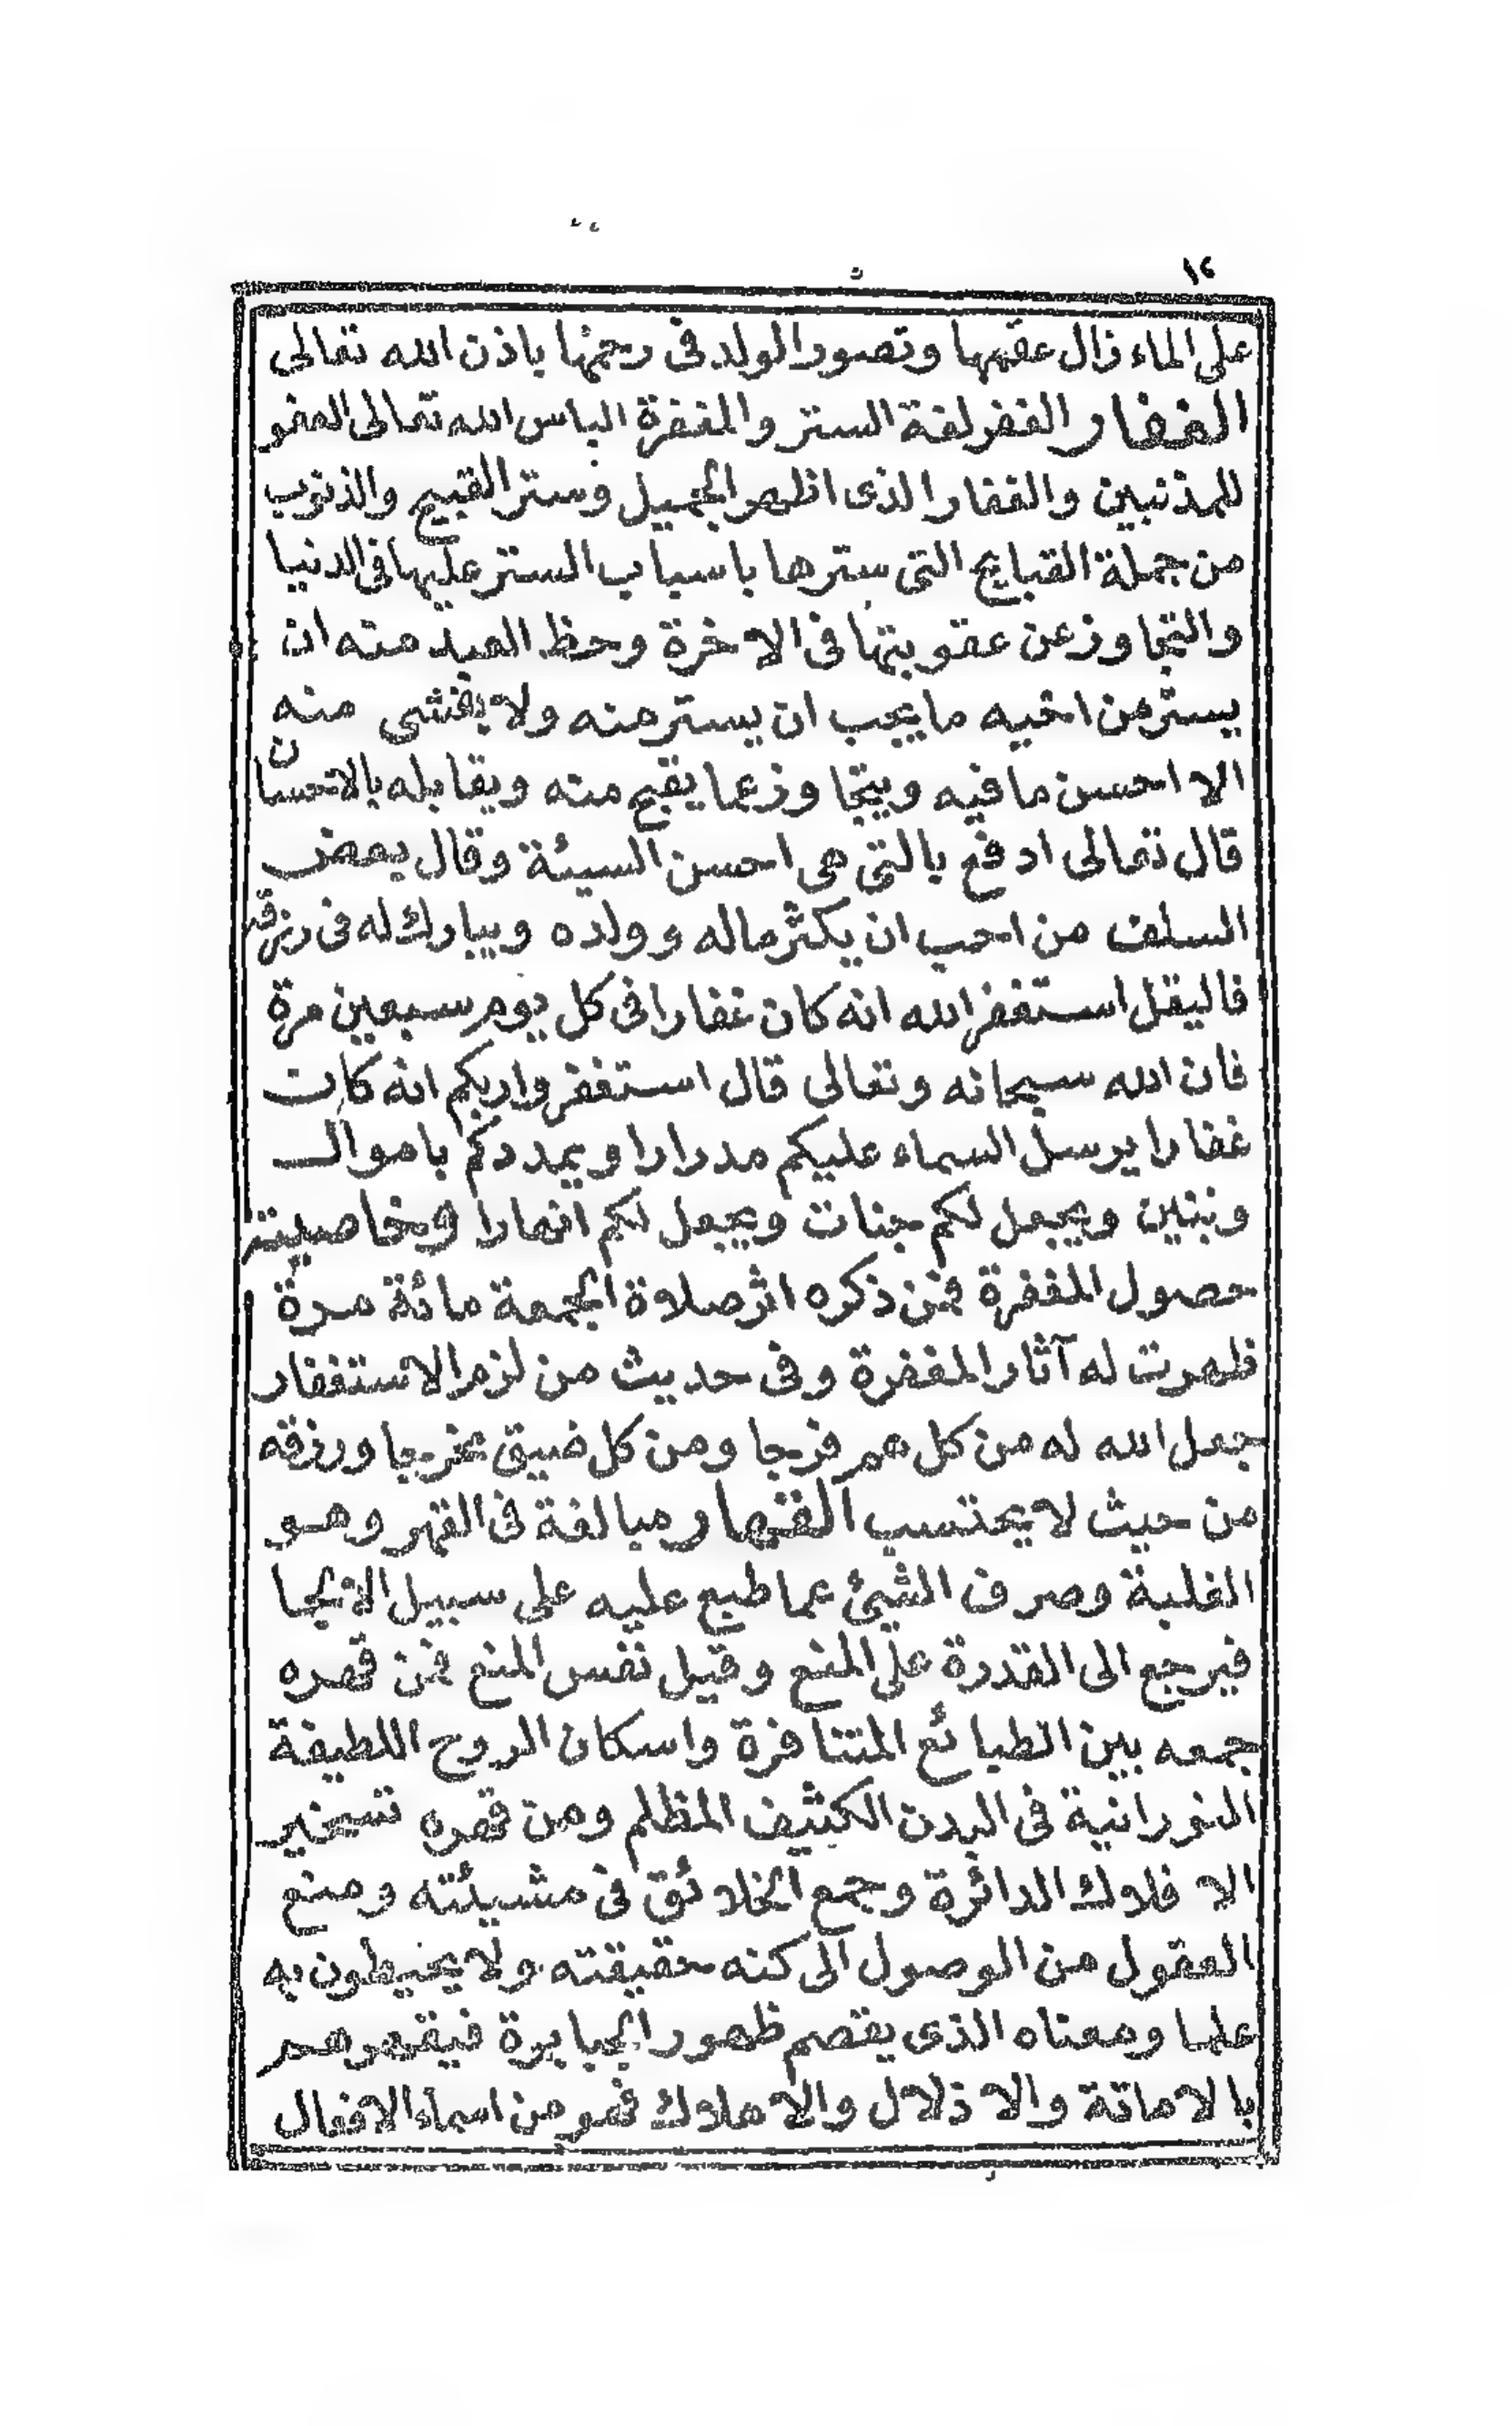 ١٢
على الماء زال عقمها وتصور الولد فى رحمها باذن الله تعالى
الغفار الغفر لغة الستر والمغفرة الباس الله تعالى العفو
للمذنبين والغفار الذى اظهر الجميل وستر القبيح والذنوب
من جملة القبايح التى سترها باسباب الستر عليها فى الدنيا
والتجاوز عن عقوبتها فى الاخرة وحظ العبد منه ان
يستر من اخيه ما يجب ان يستر منه ولا يفشى منه
الا احسن ما فيه ويتجاوز عما يقبح منه ويقابله بالاحسان
قال تعالى ادفع بالتى هى احسن السيئة وقال بعض
السلف من احب ان يكثر ماله وولده ويبارك له فى رزقه
فاليقل استغفر الله انه كان غفارا فى كل يوم سبعين مرة
فان الله سبحانه وتعالى قال استغفروا ربكم انه كان
غفارا يرسل السماء عليكم مدرارا ويمددكم باموال
وبنين ويجعل لكم جنات ويجعل لكم انهارا وخاصيته
حصول المغفرة فمن ذكره اثر صلاة الجمعة مائة مرة
ظهرت له آثار المغفرة وفى حديث من لزم الاستغفار
جعل الله له من كل هم فرجا ومن كل ضيق مخرجا ورزقه
من حيث لا يحتسب القهار مبالغة فى القهر وهو
الغلبة وصرف الشيئ عما طبع عليه على سبيل الالجا
فيرجع الى القدرة على المنع وقيل نفس المنع فمن قهره
جمعه بين الطبائع المتنافرة واسكان الروح اللطيفة
النورانية فى البدن الكثيف المظلم ومن قهره تسخير
الافلاك الدائرة وجمع الخلائق فى مشيئته ومنع
العقول من الوصول الى كنه حقيقته ولا يحيطون به
علما ومعناه الذى يقصم ظهور الجبابرة فيقهرهم
بالاماتة والاذلال والاهلاك فهو من اسماء الافعال